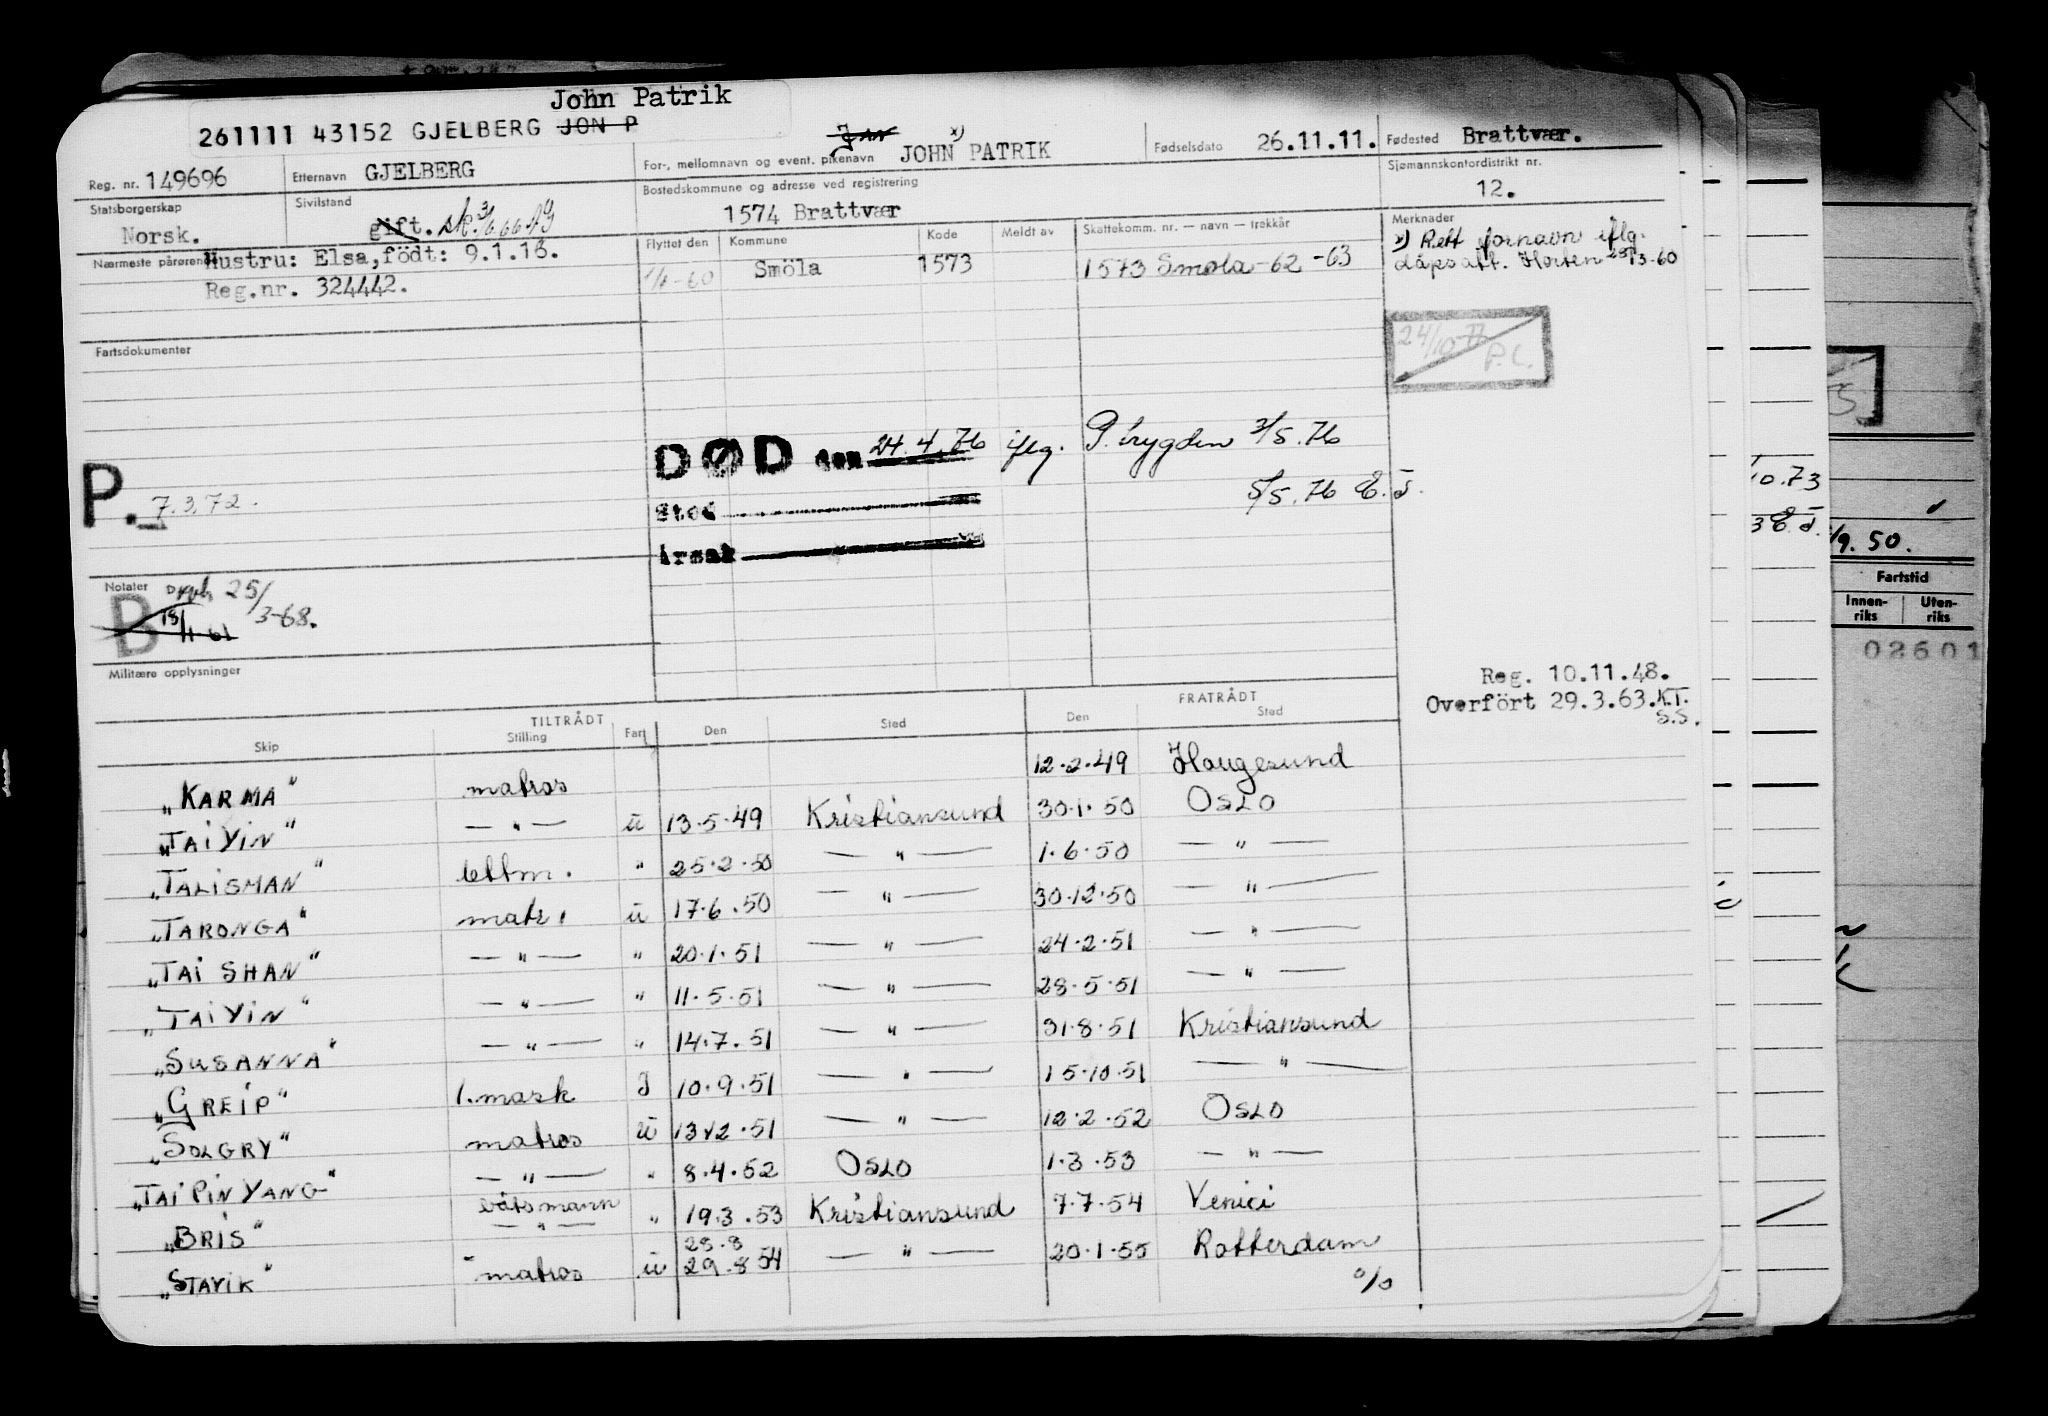 John Patrik
261111 43152 GJELBERG JON P
Reg. nr. 149696 Etternavn GJELBERG For-, mellomnavn og event. pikenavn Jan x) JOHN PATRIK Fødselsdato 26.11.11. Fødested Brattvær.
Statsborgerskap Norsk. Sivilstand gift. Bostedskommune og adresse ved registrering 1574 Brattvær Sjømannskontordistrikt nr. 12.
Nærmeste pårørende Hustru: Elsa, födt: 9.1.16. Flyttet den Kommune Kode Meldt av Skattekomm. nr. — navn — trekkår Merknader
Reg.nr. 324442. 1/1-60 Smöla 1573 1573 Smøla -62 -63 x) Rett fornavn iflg.
dåpsatt. Horten 23/3-60
Fartsdokumenter 24/10-77 P.L.
DØD den 24.4.76 iflg. P. trygden 3/5.76
P. 7.3.72. Sted 5/5.76 E.J.
Årsak
Notater B 25/3-68.
Militære opplysninger
Reg. 10.11.48.
Overfört 29.3.63. K.T.
S.S.
TILTRÅDT FRATRÅDT
Skip Stilling Fart Den Sted Den Sted
"KARMA" matros 12.2.49 Haugesund
"TAI YIN" — " — u 13.5.49 Kristiansund 30.1.50 OSLO
"TALISMAN" lettm. " 25.2.50 — " — 1.6.50 — " —
"TARONGA" matr. u 17.6.50 — " — 30.12.50 — " —
"TAI SHAN" — " — " 20.1.51 — " — 24.2.51 — " —
"TAI YIN" — " — " 11.5.51 — " — 28.5.51 — " —
"SUSANNA" — " — " 14.7.51 — " — 31.8.51 Kristiansund
"GREIP" 1. mask J 10.9.51 — " — 15.10.51 — " —
"SOLGRY" matros u 13.12.51 — " — 12.2.52 OSLO
"TAI PIN YANG" — " — " 8.4.52 OSLO 1.3.53 — " —
"BRIS" båtsmann " 19.3.53 Kristiansund 7.7.54 Venici
— " — 28.8
"STAVIK" matros u 29.8 54 — " — 20.1.55 Rotterdam
o/o
10.73
/9. 50.
Fartstid
Innen-riks Uten-riks
02601